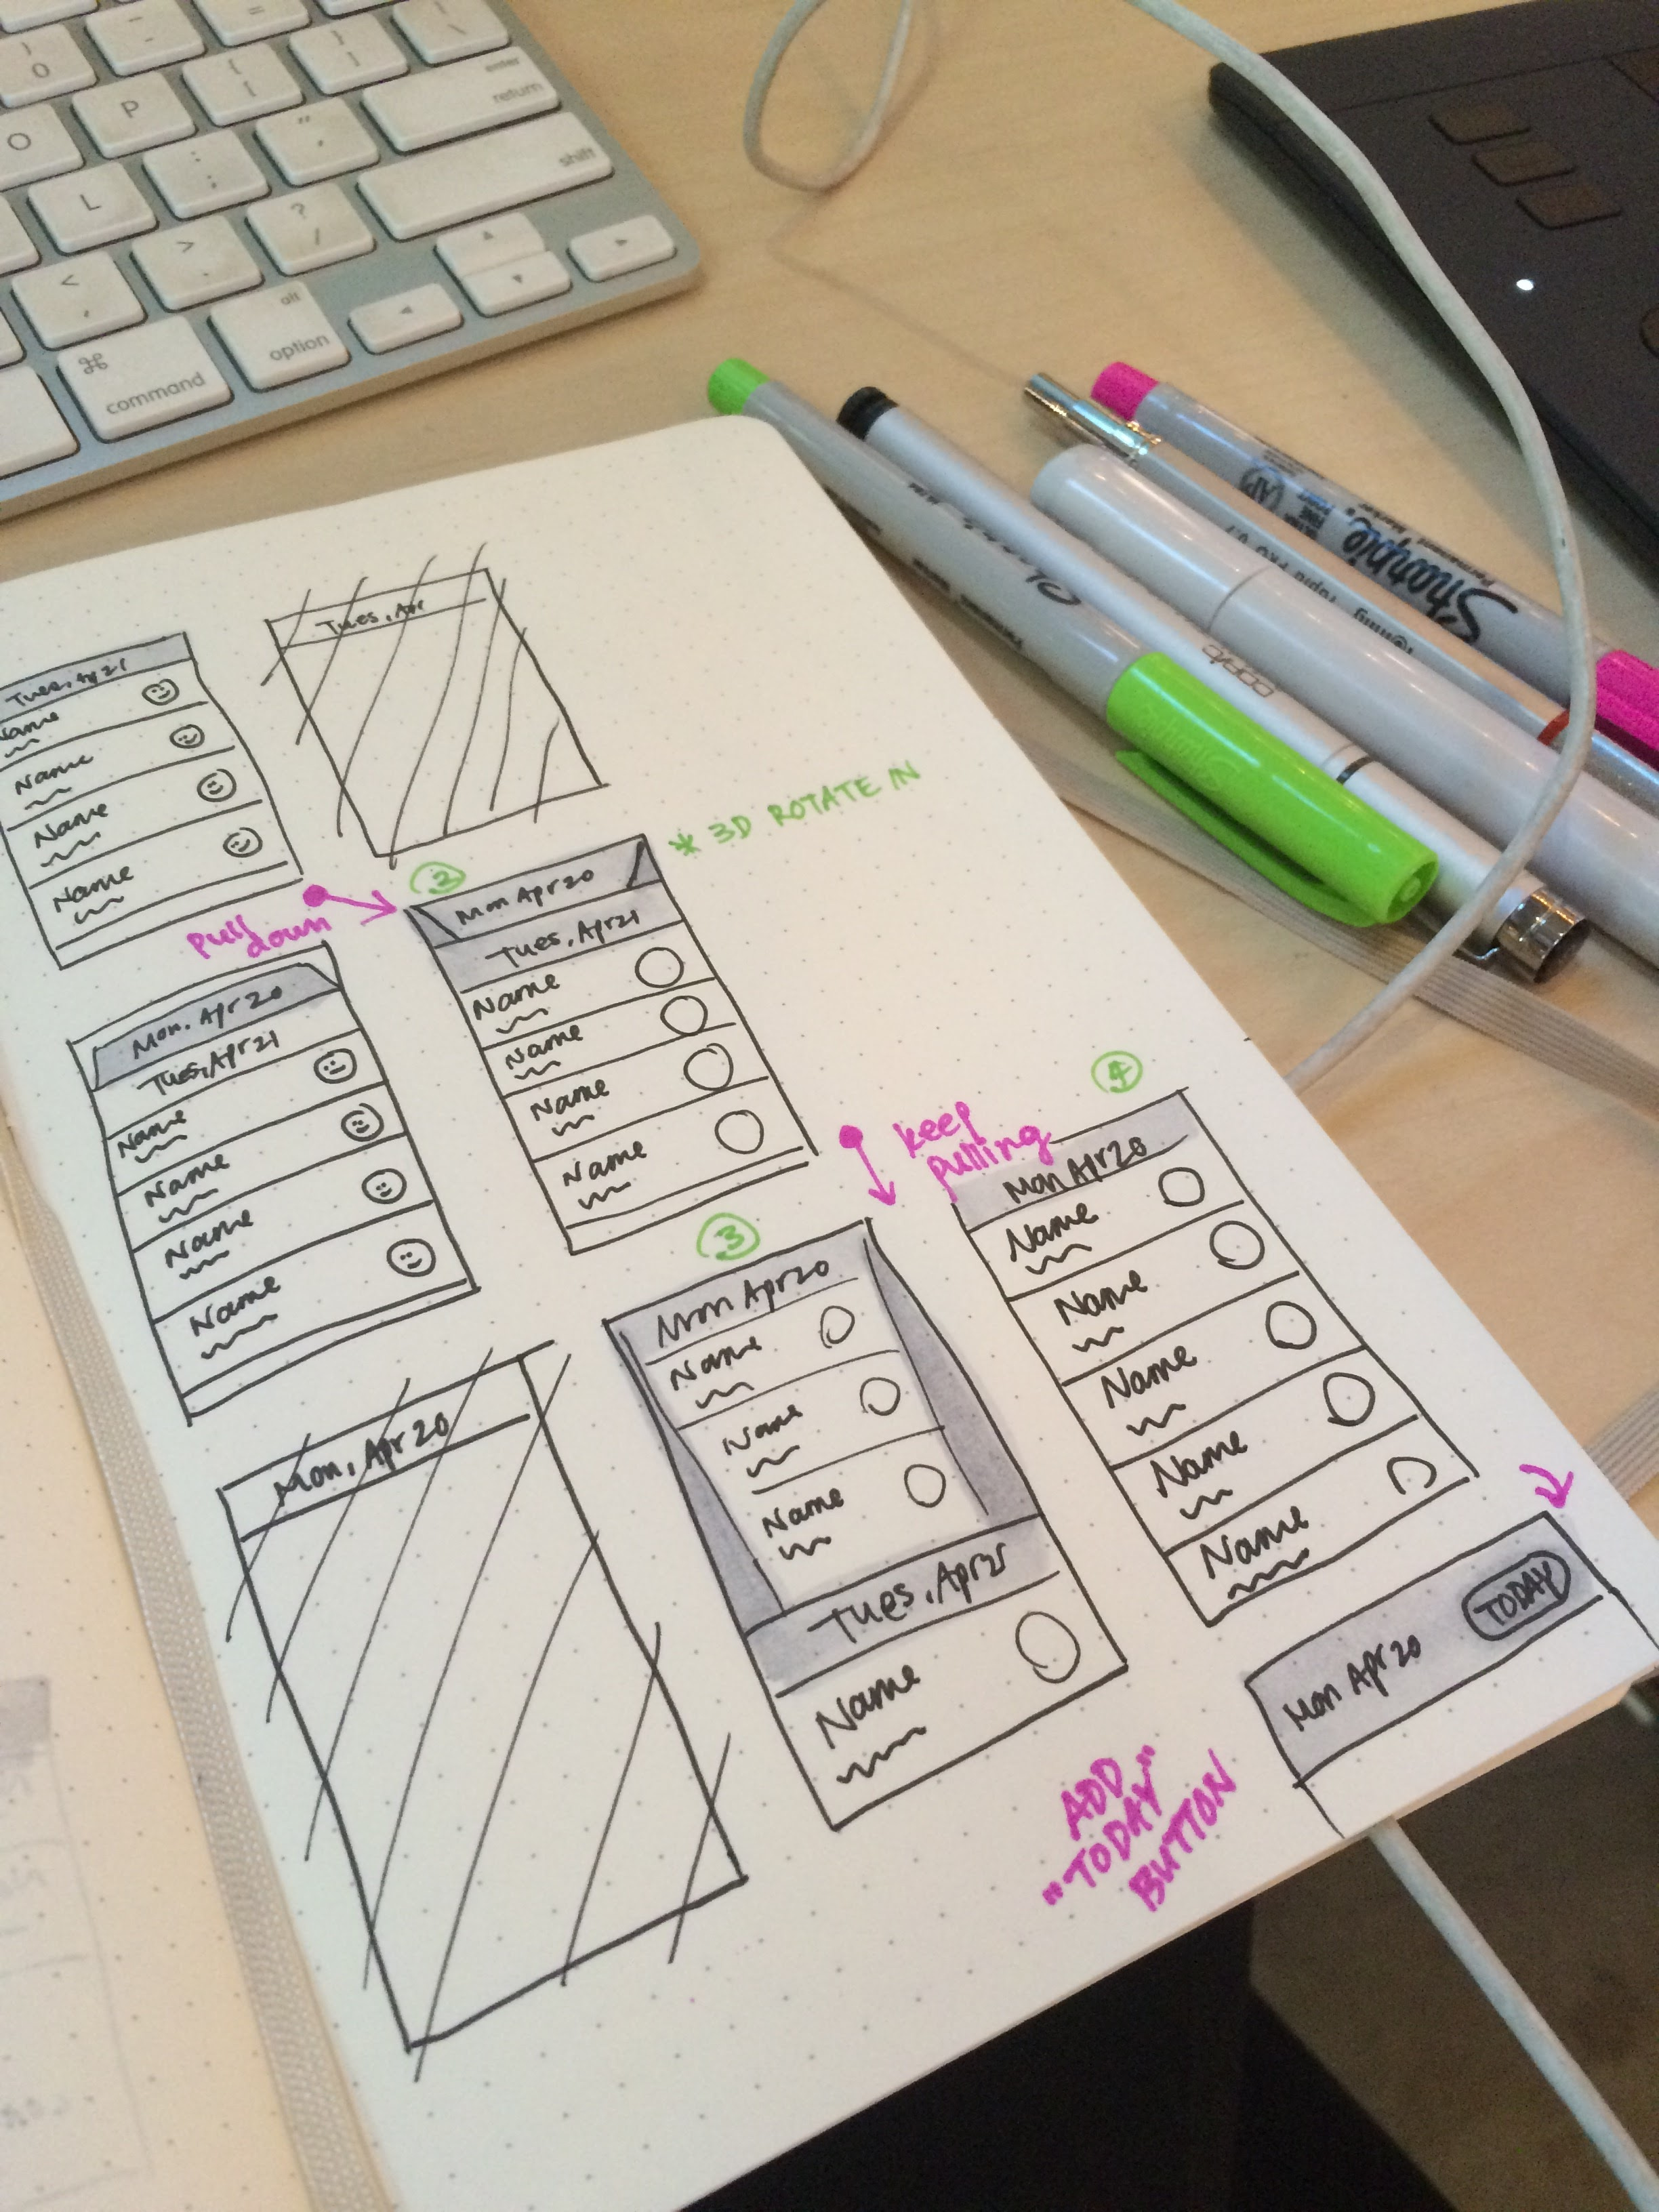 - =
) 0 P { [ } ] | \ enter return
O L : ; " ' shift
< , > . ? /
⌘ command alt option
Sharpie
COPIC
Tues, Apr 21
Name
Name
Name
Name
Tues, Apr
pull
down
2
* 3D ROTATE IN
Mon Apr 20
Tues, Apr 21
Name
Name
Name
Name
Mon. Apr 20
Tues, Apr 21
Name
Name
Name
Name
keep
pulling
3
Mon Apr 20
Name
Name
Name
Tues, Apr 21
Name
4
Mon Apr 20
Name
Name
Name
Name
Name
Mon, Apr 20
Mon Apr 20
TODAY
ADD
"TODAY"
BUTTON